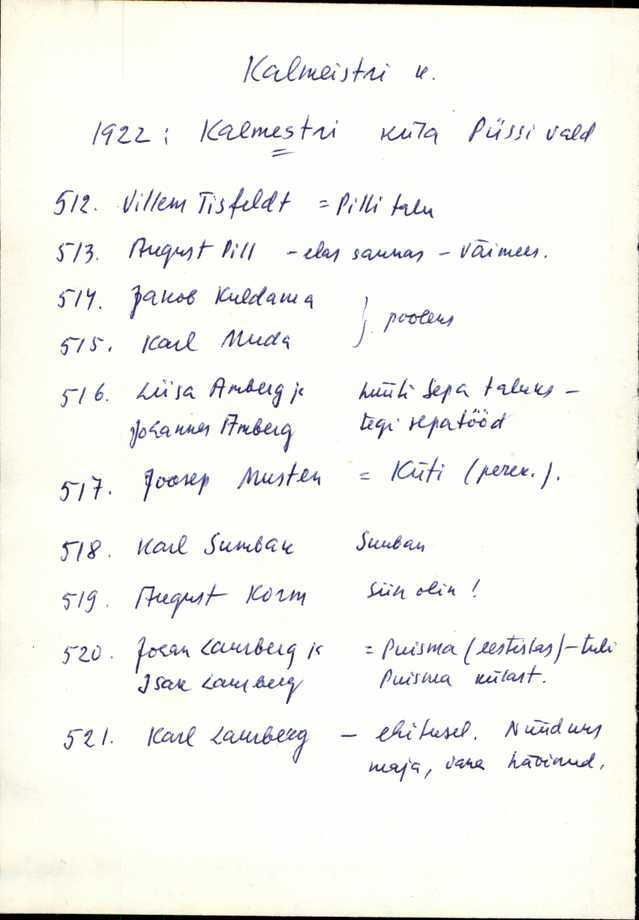 Kalmeistri k.
1922: Kalmestri küla Püssi vald
512. Villem Tisfeldt = Pilli talu
513. August Pill - elas saunas - väimees.
514. Jakob Kuldama
515. Karl Muda } pooleks
516. Liisa Amberg ja hüüti Sepa taluks -
Johannes Amberg tegi sepatööd
517. Joosep Musten = Küti (perek.).
518. Karl Sumbak Sumban
519. August Korm Siin olin!
520. Johan Lamberg ja = Puisma (eestistas) - tuli
Isak Lamberg Puisma külast.
521. Karl Lamberg - ehitusel. Nüüd uus
maja, vana hävinud.